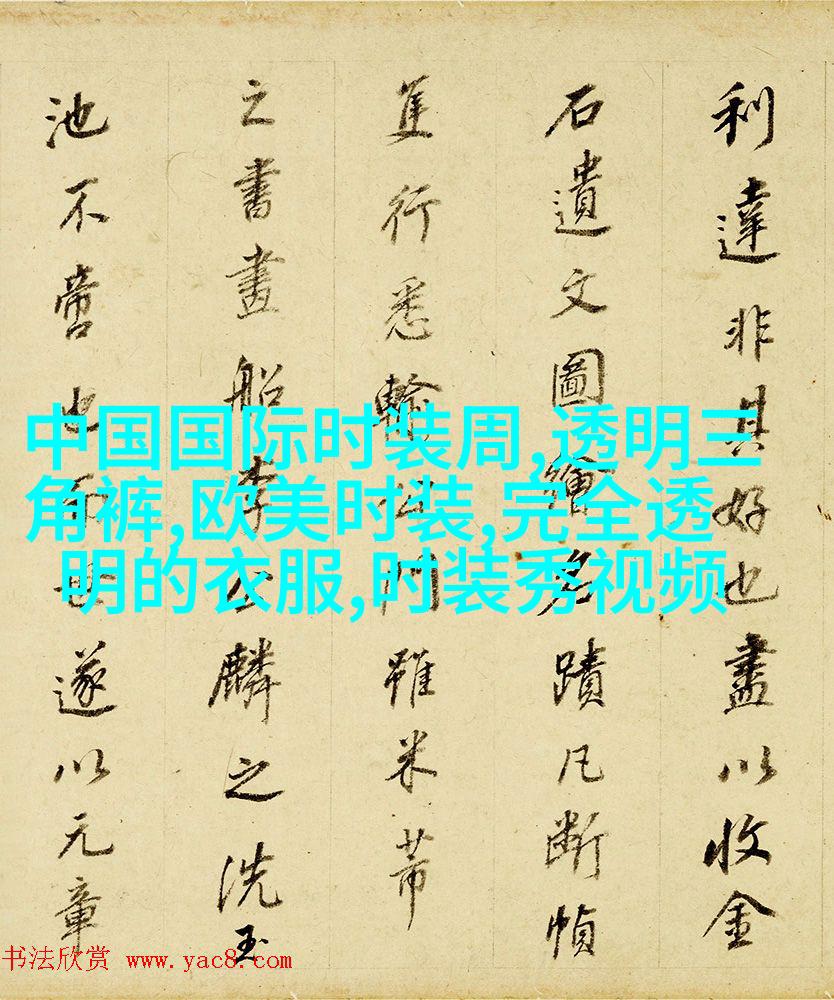 利達非其好也盡以收金
石遺文圖繪名蹟凡斷幀
隻行悉輸門雖米芾
之書畫船李公麟之洗玉
池不啻也而世遂以元章
中国国际时装周,透明三
角裤,欧美时装,完全透
明的衣服,时装秀视频
书法欣赏 www.yac8.com